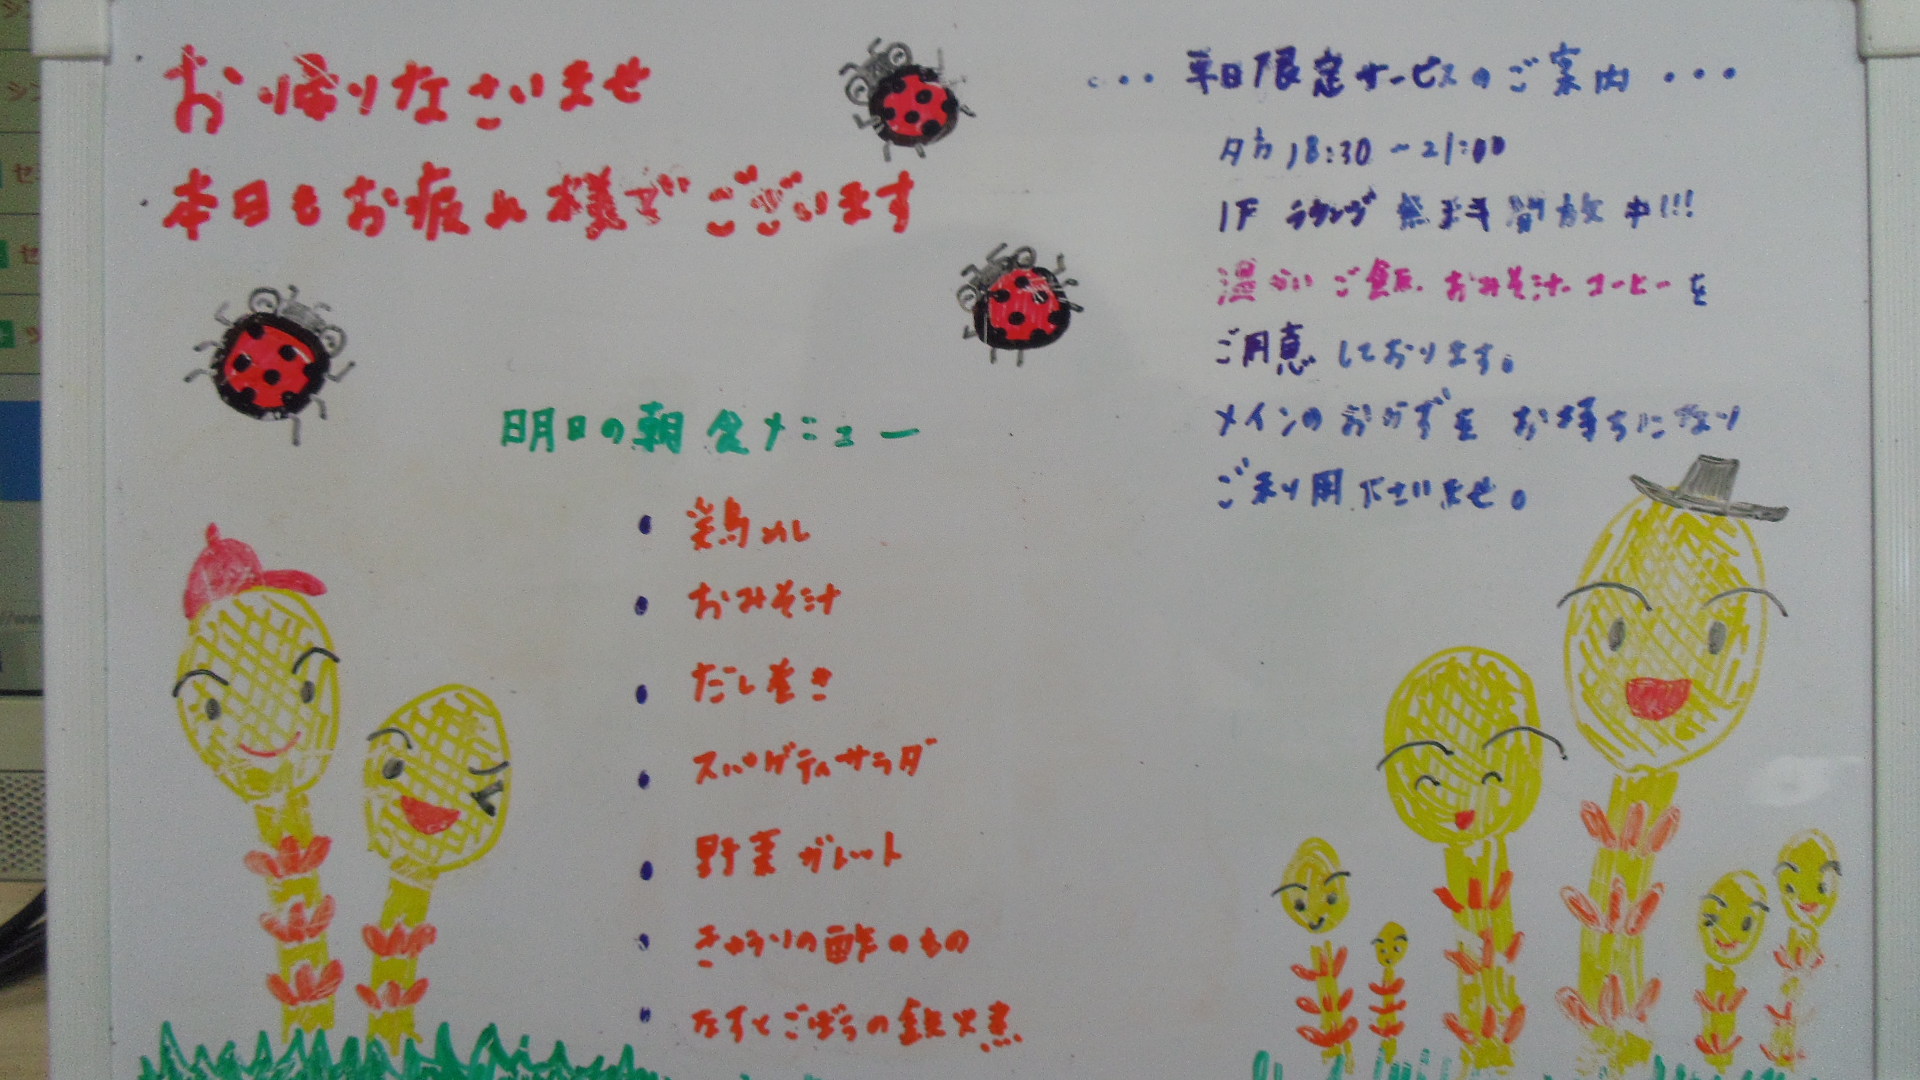 お帰りなさいませ
本日もお疲れ様でございます
明日の朝食メニュー
・鶏めし
・おみそ汁
・だしまき
・スパゲティサラダ
・野菜ガレット
・きゅうりの酢のもの
・なすとごぼうの
・・・平日限定サービスのご案内・・・
夕方18:30~21:00
1F ラウンジ 無料開放中!!!
温かいご飯、おみそ汁、コーヒーを
ご用意しております。
メインのおかずをお持ちになり
ご利用下さいませ。